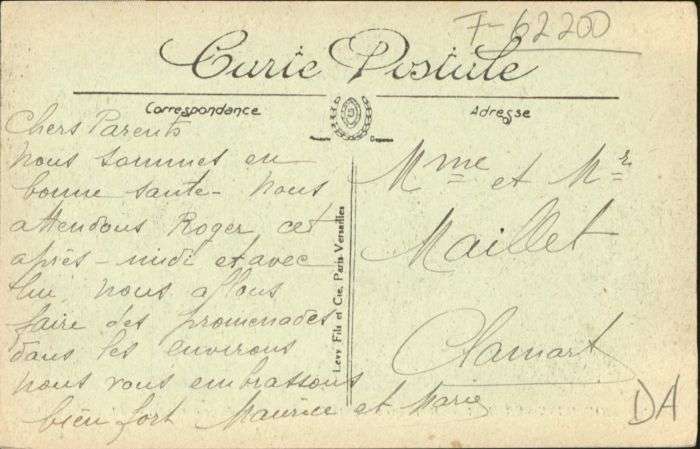 F-62200
Carte Postale
Correspondance
Adresse
Chers Parents
nous sommes en
bonne santé - nous
attendons Roger cet
après-midi et avec
lui, nous allons
faire des promenades
dans les environs
nous vous embrassons
bien fort Maurice et Marie
Levy Fils et Cie, Paris-Versailles
Mme et Mr
Maillet
Clamart
DA